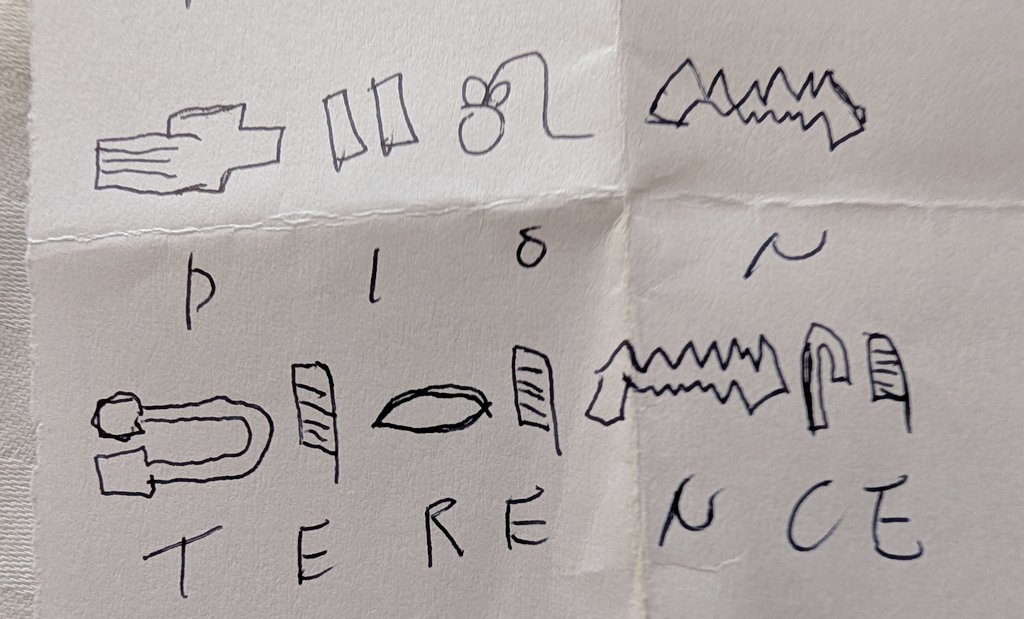 P I O N
T E R E N C E